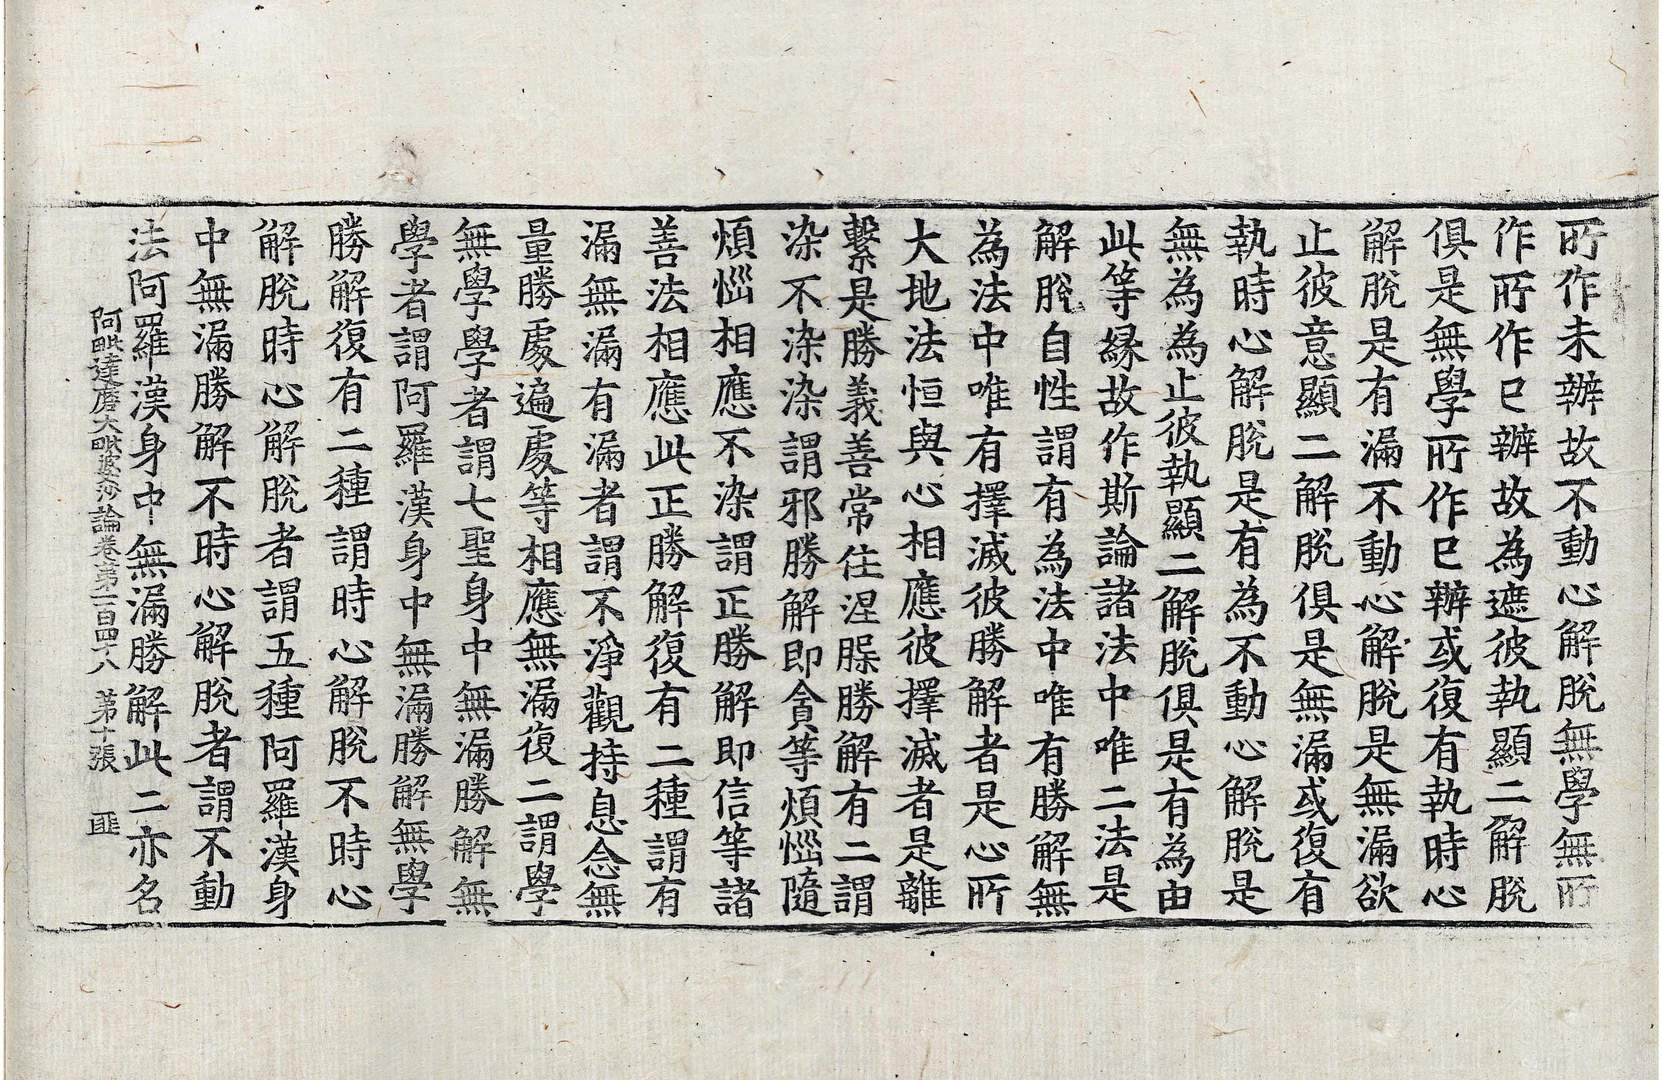 所作未辦故不動心解脫無學無所
作所作已辦故為遮彼執顯二解脫
俱是無學所作已辦或復有執時心
解脫是有漏不動心解脫是無漏欲
止彼意顯二解脫俱是無漏或復有
執時心解脫是有為不動心解脫是
無為為止彼執顯二解脫俱是有為由
此等緣故作斯論諸法中唯二法是
解脫自性謂有為法中唯有勝解無
為法中唯有擇滅彼勝解者是心所
大地法恒與心相應彼擇滅者是離
繫是勝義善常住涅槃勝解有二謂
染不染染謂邪勝解即貪等煩惱隨
煩惱相應不染謂正勝解即信等諸
善法相應此正勝解復有二種謂有
漏無漏有漏者謂不淨觀持息念無
量勝處遍處等相應無漏復二謂學
無學學者謂七聖身中無漏勝解無
學者謂阿羅漢身中無漏勝解無學
勝解復有二種謂時心解脫不時心
解脫時心解脫者謂五種阿羅漢身
中無漏勝解不時心解脫者謂不動
法阿羅漢身中無漏勝解此二亦名
阿毗達磨大毗婆沙論卷第一百四十八 第十張 匪